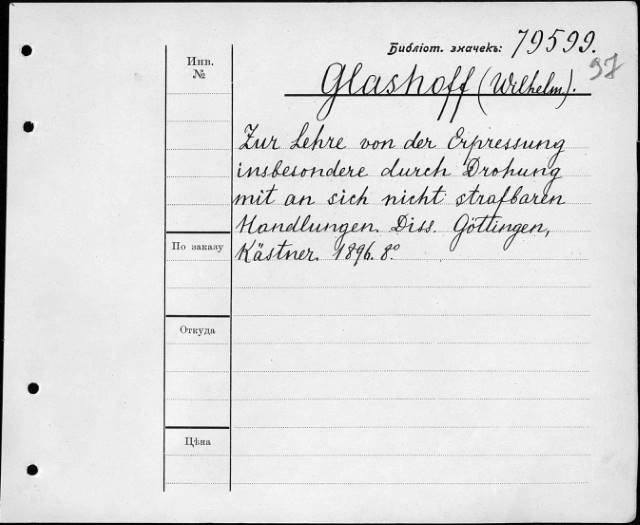 Библіот. значекъ: 79599.
97
Инв.
№
Glashoff (Wilhelm).
Zur Lehre von der Erpressung
insbesondere durch Drohung
mit an sich nicht strafbaren
Handlungen. Diss. Göttingen,
По заказу
Kästner. 1896. 8º
Откуда
Цѣна